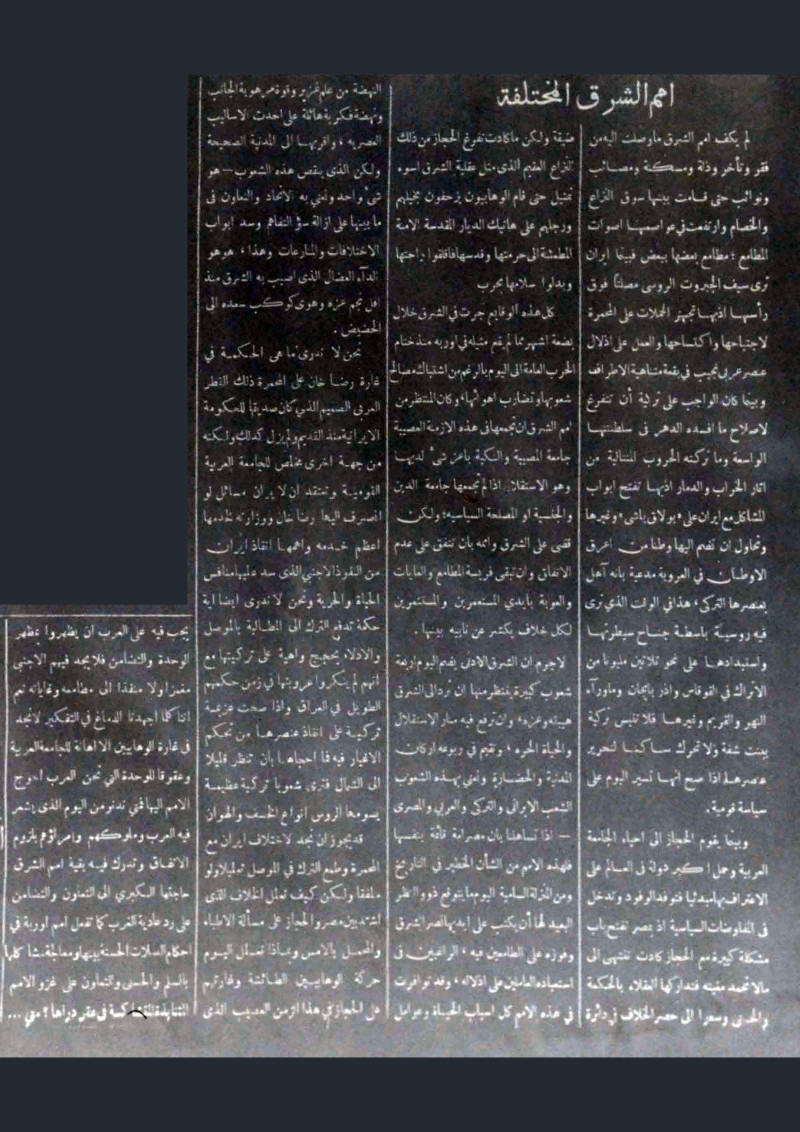 امم الشرق المختلفة
لم يكف امم الشرق ما وصلت اليه من
فقر وتأخر وذلة ومسكنة ومصائب
ونوائب حتى قامت بينها سوق النزاع
والخصام وارتفعت في عواصمها اصوات
المطامع ؛ مطامع بعضها ببعض فبينا ايران
ترى سيف الجبروت الروسى مصلتاً فوق
رأسها اذ بها تجهز الحملات على المحمرة
لاجتياحها واكتساحها والعمل على اذلال
عنصر عربى نجيب فى بقعة متناهية الاطراف
وبينما كان الواجب على تركية أن تتفرغ
لاصلاح ما افسده الدهر فى سلطنتها
الواسعة وما تركته الحروب المتتالية من
اثار الخراب والدمار اذ بها تفتح ابواب
المشاكل مع ايران على «بولاق باشى» وغيرها
وتحاول ان تضم اليها وطنا من اعرق
الاوطان فى العروبة مدعية بأنه آهل
بعنصرها التركى ، هذا فى الوقت الذى ترى
فيه روسية باسطة جناح سيطرتها
واستبدادها على نحو ثلاثين مليونا من
الأتراك فى القوقاس واذربايجان وماوراء
النهر والقريم وغيرها فلا تنبس تركية
ببنت شفة ولا تحرك ساكنا لتحرير
عنصرها اذا صح انها تسير اليوم على
سياسة قومية.
وبينما يقوم الحجاز الى احياء الجامعة
العربية وحمل اكبر دولة فى العالم على
الاعتراف بها مبدئيا فتوفد الوفود وتدخل
فى المفاوضات السياسية اذ بمصر تفتح باب
مشكلة كبيرة مع الحجاز كادت تنتهى الى
مالا تحمد مغبته فتداركها العقلاء بالحكمة
والحسنى وسعوا الى حصر الخلاف فى دائرة
ضيقة ولكن ما كادت تفرغ الحجاز من ذلك
النزاع العقيم الذى مثل عقلية الشرق اسوء
تمثيل حتى قام الوهابيون يزحفون بخيلهم
ورجلهم على هاتيك الديار المقدسة الامنة
المطمئنة الى حرمتها وقدسها فاقلقوا راحتها
وبدلوا سلامها بحرب
كل هذه الوقايع جرت في الشرق خلال
بضعة اشهر مما لم يقم مثيله في اوربه منذ ختام
الحرب العامة الى اليوم بالرغم من اشتباك مصالح
شعوبها وتضارب اهوائها ، وكان المنتظر من
امم الشرق ان تجمعها فى هذه الازمنة العصيبة
جامعة المصيبة والنكبة باعز شئ لديها
وهو الاستقلال اذا لم تجمعها جامعة الدين
والجنسية او المصلحة السياسيه ؛ ولكن
قضى على الشرق وامه بان تتفق على عدم
الاتفاق وان تبقى فريسة المطامع والغايات
والعوبة بايدي المستعمرين والمستثمرين
لكل خلاف يكشر عن نابيه بينها .
لاجرم ان الشرق الادنى يضم اليوم اربعة
شعوب كبيرة ينتظر منها ان ترد الى الشرق
هيبته وعزه ، وان ترفع فيه منار الاستقلال
والحياة الحره ، وتقيم في ربوعه اركان
المدنية والحضارة ونعني بهذه الشعوب
الشعب الايرانى والتركى والعربي والمصرى
— اذا تساهلنا بأن مصر امة قائمة بنفسها
فلهذه الامم من الشأن الخطير فى التاريخ
ومن المنزلة السامية اليوم ما يتوقع ذوو النظر
البعيد لها أن يكتب على ايديها نصر الشرق
وفوزه على الطامعين فيه ، الراغبين فى
استعباده العاملين على اذلاله ، وقد توافرت
في هذه الامم كل اسباب الحياة وعوامل
النهضة من علم غزير وقوة مرهوبة الجانب
ونهضة فكرية هائلة على احدث الاساليب
العصريه ، واقربها الى المدنية الصحيحة
ولكن الذى ينقص هذه الشعوب — هو
شئ واحد ونعني به الاتحاد والتعاون فى
ما بينها على ازالة سؤ التفاهم وسد ابواب
الاختلافات والمنازعات وهذا ، هو هو
الداء العضال الذى اصيب به الشرق منذ
افل نجم عزه وهوى كوكب سعده الى
الحضيض .
نحن لا ندرى ما هى الحكمة في
غارة رضا خان على المحمرة ذلك القطر
العربى الصميم الذي كان صديقا للحكومة
الايرانية منذ القديم ولم يزل كذلك ولكنه
من جهة اخرى مخلص للجامعة العربية
القومية ونعتقد ان لايران مسائل لو
انصرف اليها رضا خان ووزارته لخدمها
اعظم خدمه واهمها انقاذ ايران
من النفوذ الاجنبي الذى سد عليها منافس
الحياة والحرية ونحن لا ندرى ايضا اية
حكمة تدفع الترك الى المطالبة بالموصل
والادلاء بحجج واهية على تركيتها مع
انهم لم ينكروا عروبتها في زمن حكمهم
الطويل في العراق واذا صحت عزيمة
تركية على انقاذ عنصرها من تحكم
الاغيار فيه فما احجاها بان تنظر قليلا
الى الشمال فترى شعوبا تركية عظيمة
يسومها الروس انواع الخسف والهوان
قد يجوز ان نجد لاختلاف ايران مع
المحمرة وطمع الترك في الموصل تعليلا ولو
ملفقا ولكن كيف نعلل الخلاف الذى
اشتد بين مصر والحجاز على مسألة الاطباء
والمحمل بالامس وبماذا نعلل اليوم
حركة الوهابيين الطائشة وغارتهم
على الحجاز في هذا الزمن العصيب الذى
يجب فيه على العرب ان يظهروا بمظهر
الوحدة والتضامن فلا يجد فيهم الاجنبى
مغمزا ولا منفذا الى مطامعه وغاياته نعم
أننا كلما أجهدنا الدماغ في التفكير لا نجد
فى غارة الوهابيين الا اهانة للجامعة العربية
وعقوقا للوحدة التي نحن العرب احوج
الامم اليها فمتى تدنو من اليوم الذى يشعر
فيه العرب وملوكهم وامراؤهم بلزوم
الاتفاق وتدرك فيه بقية امم الشرق
حاجتها الكبرى الى التعاون والتضامن
على رد عادية الغرب كما تفعل امم اوربة في
احكام الصلات الحسنة بينها ومعالجة مشاكلها
بالسلم والحسنى والتعاون على غزو الامم
فى عقر دراها ؟ متى ...